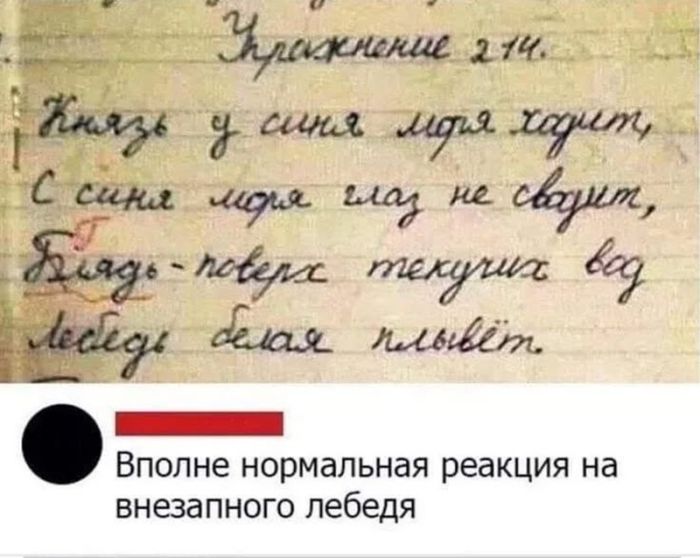 Упражнение 214.
Князь у синя моря ходит,
С синя моря глаз не сводит,
Г
Блядь - поверх текучих вод
Лебедь белая плывёт.
Вполне нормальная реакция на
внезапного лебедя